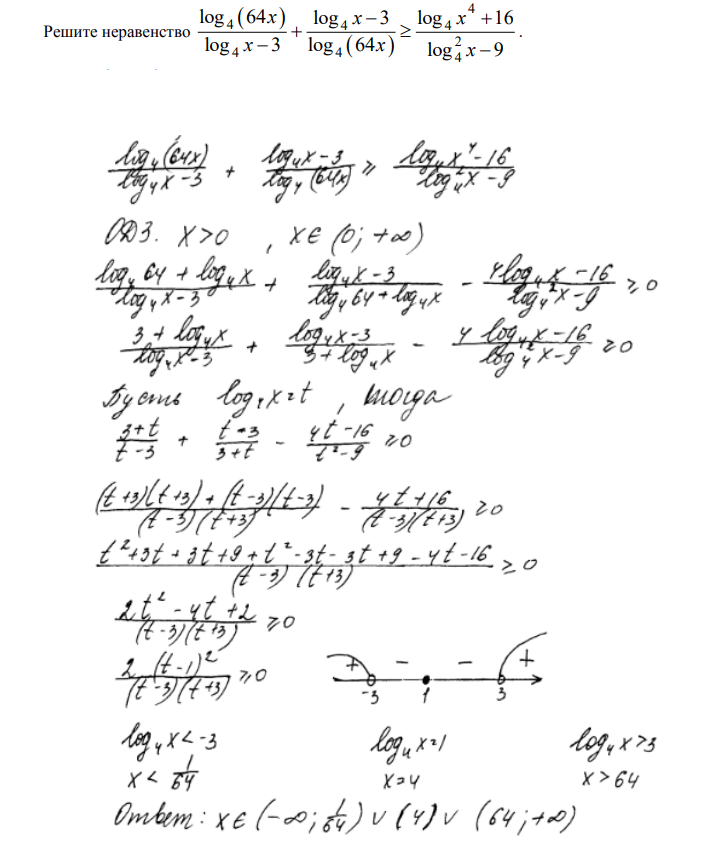 Решите неравенство log₄(64x)/(log₄x−3) + (log₄x−3)/log₄(64x) ≥ (log₄x⁴+16)/(log₄²x−9).
log₄(64x)/(log₄x−3) + (log₄x−3)/log₄(64x) ≥ (log₄x⁴−16)/(log₄²x−9)
ОДЗ. x>0 , x∈(0; +∞)
(log₄64+log₄x)/(log₄x−3) + (log₄x−3)/(log₄64+log₄x) − (4log₄x−16)/(log₄²x−9) ≥0
(3+log₄x)/(log₄x−3) + (log₄x−3)/(3+log₄x) − (4log₄x−16)/(log₄²x−9) ≥0
Пусть log₄x=t , тогда
(3+t)/(t−3) + (t−3)/(3+t) − (4t−16)/(t²−9) ≥0
((t+3)(t+3)+(t−3)(t−3))/((t−3)(t+3)) − (4t+16)/((t−3)(t+3)) ≥0
(t²+3t+3t+9+t²−3t−3t+9−4t−16)/((t−3)(t+3)) ≥0
(2t²−4t+2)/((t−3)(t+3)) ≥0
2(t−1)²/((t−3)(t+3)) ≥0
+ − − +
−3 1 3
log₄x<−3 log₄x=1 log₄x>3
x<1/64 x=4 x>64
Ответ: x∈(−∞; 1/64)∪(4)∪(64;+∞)